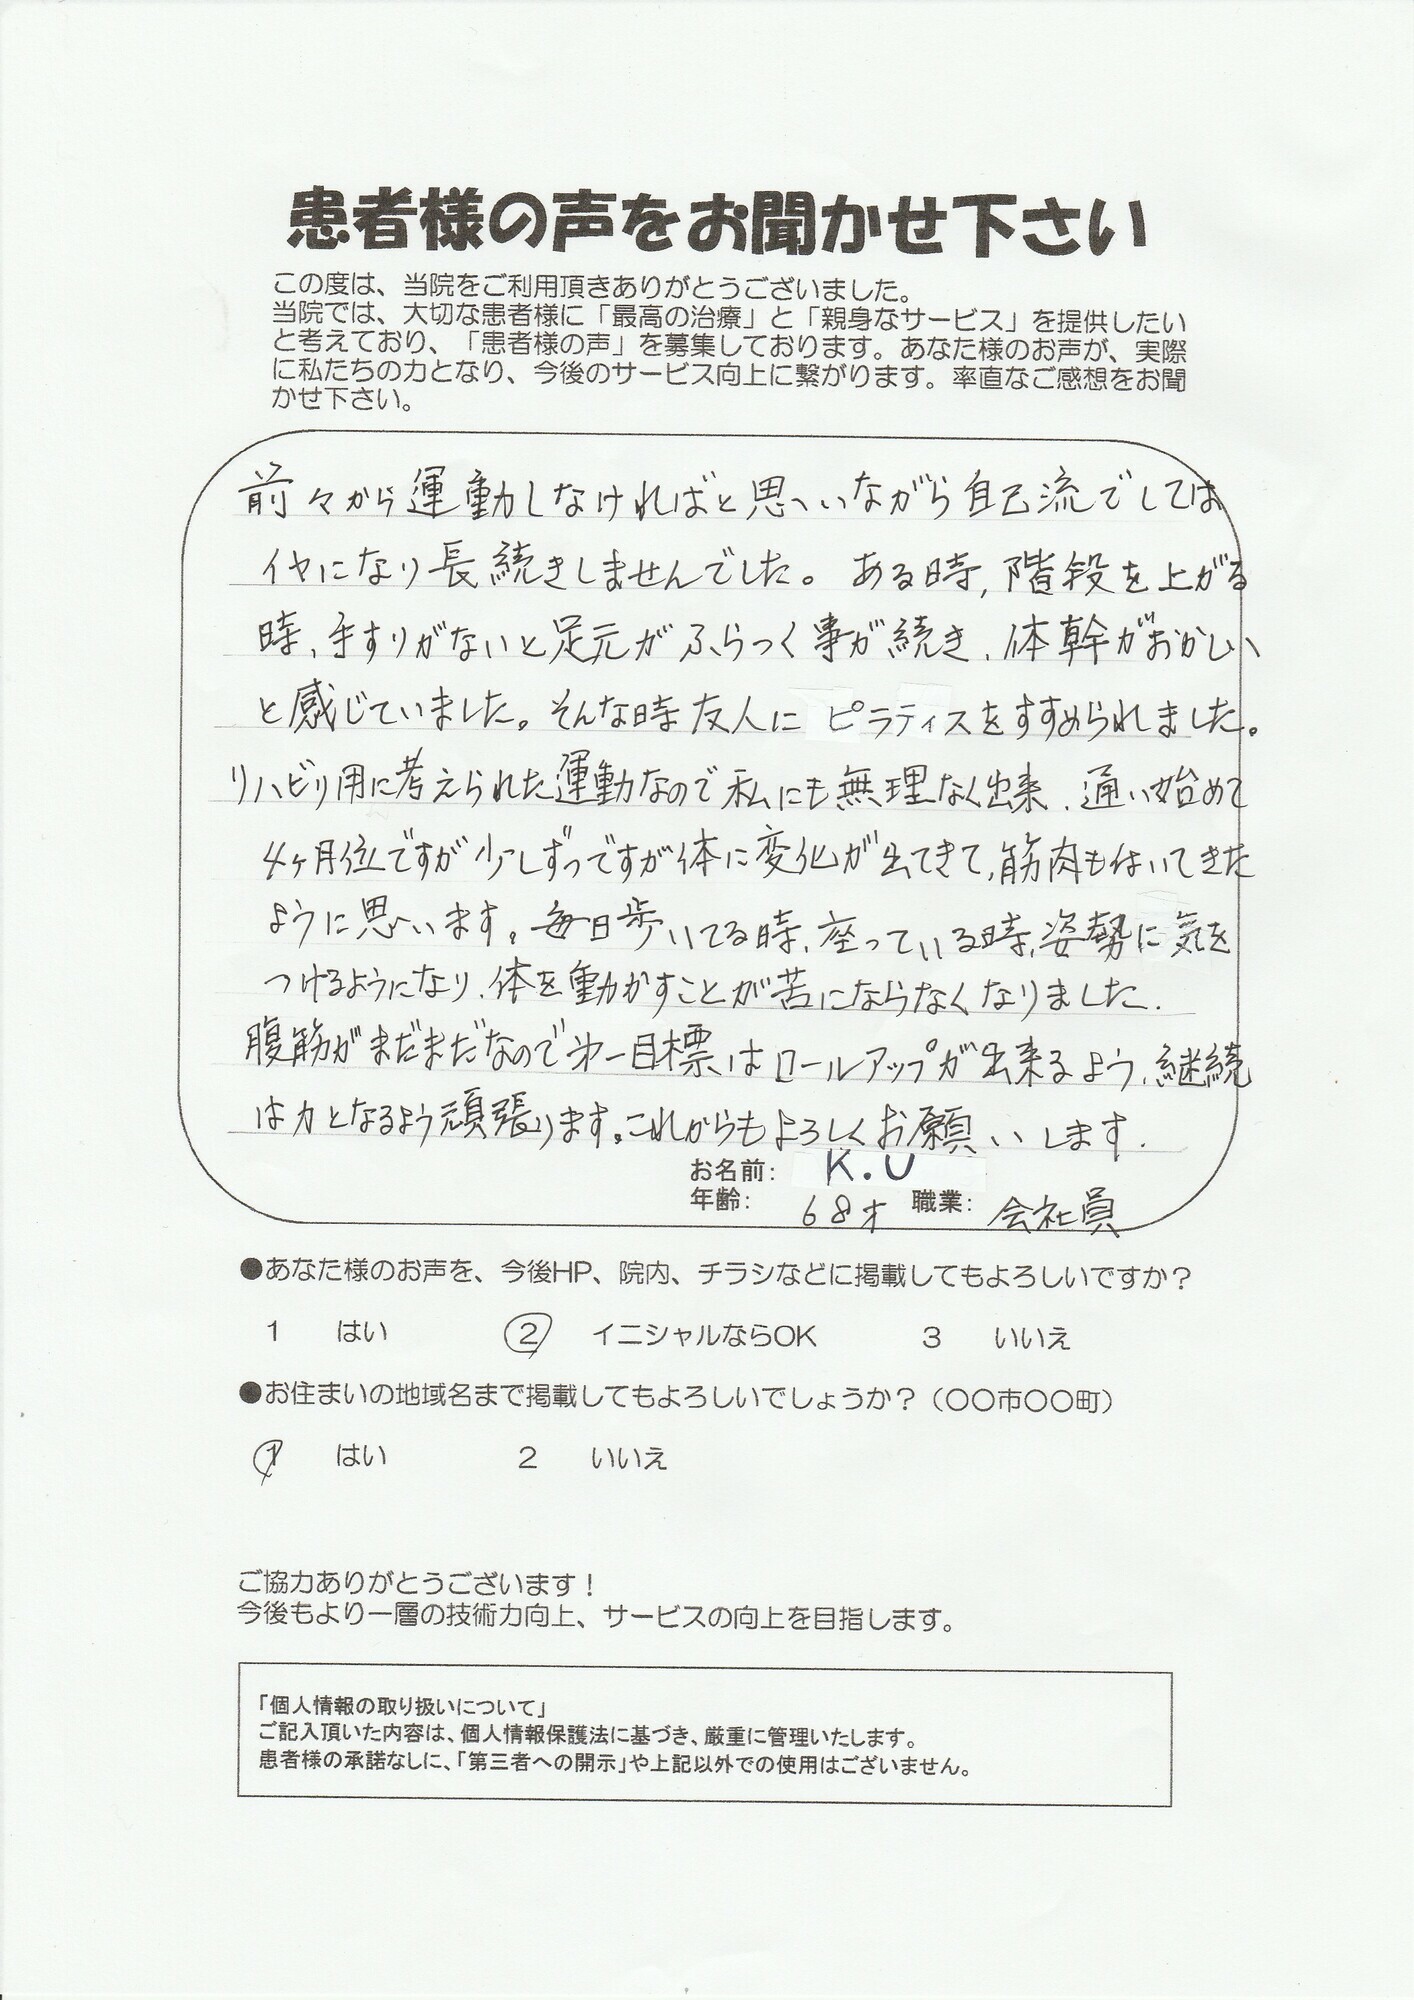 患者様の声をお聞かせ下さい
この度は、当院をご利用頂きありがとうございました。
当院では、大切な患者様に「最高の治療」と「親身なサービス」を提供したい
と考えており、「患者様の声」を募集しております。あなた様のお声が、実際
に私たちの力となり、今後のサービス向上に繋がります。率直なご感想をお聞
かせ下さい。
前々から運動しなければと思いながら自己流でしては
イヤになり長続きしませんでした。ある時、階段を上がる
時、手すりがないと足元がふらつく事が続き、体幹がおかしい
と感じていました。そんな時友人にピラティスをすすめられました。
リハビリ用に考えられた運動なので私にも無理なく出来、通い始めて
4ヶ月位ですが少しずつですが体に変化が出てきて、筋肉も付いてきた
ように思います。毎日歩いてる時、座っている時、姿勢に気を
つけるようになり、体を動かすことが苦にならなくなりました。
腹筋がまだまだなので第一目標はロールアップが出来るよう、継続
は力となるよう頑張ります。これからもよろしくお願いします。
お名前: K.U
年齢: 68才 職業: 会社員
●あなた様のお声を、今後HP、院内、チラシなどに掲載してもよろしいですか?
1 はい ② イニシャルならOK 3 いいえ
●お住まいの地域名まで掲載してもよろしいでしょうか?(〇〇市〇〇町)
① はい 2 いいえ
ご協力ありがとうございます!
今後もより一層の技術力向上、サービスの向上を目指します。
「個人情報の取り扱いについて」
ご記入頂いた内容は、個人情報保護法に基づき、厳重に管理いたします。
患者様の承諾なしに、「第三者への開示」や上記以外での使用はございません。